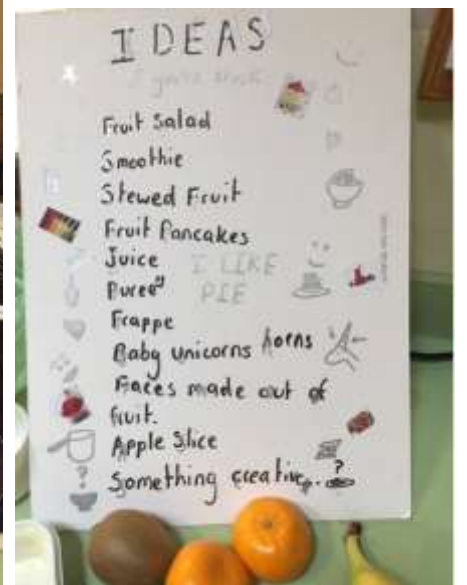 IDEAS
Fruit Salad
Smoothie
Stewed Fruit
Fruit Pancakes
Juice
I LIKE
Puree
PIE
Frappe
Baby unicorns horns
Faces made out of
fruit.
Apple Slice
?
Something creative. ?